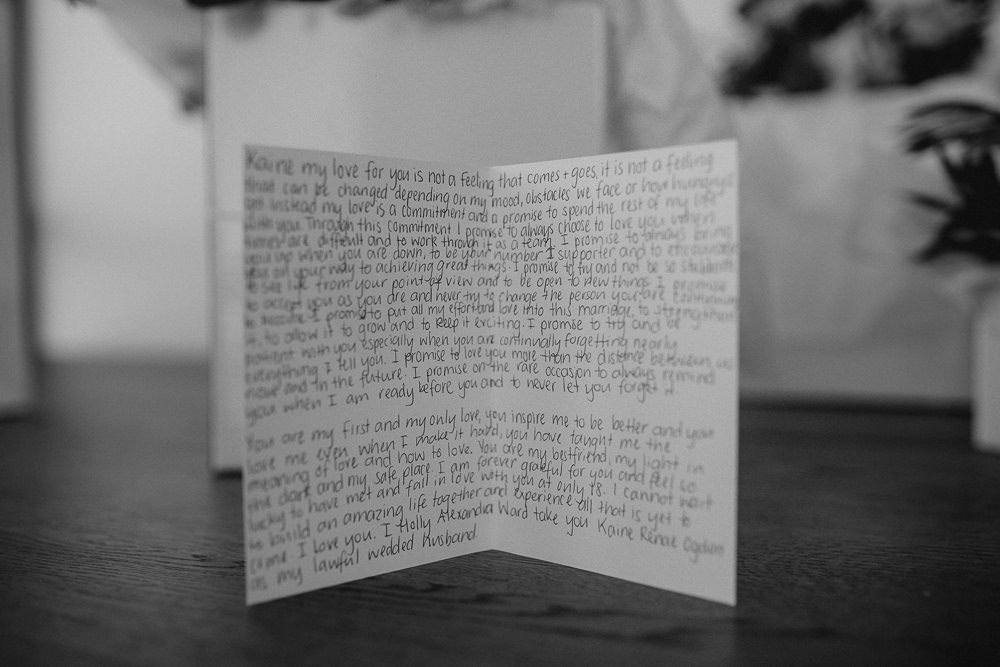 Kaine my love for you is not a feeling that comes + goes, it is not a feeling
that can be changed depending on my mood, obstacles we face or how hungry I
am instead my love is a commitment and a promise to spend the rest of my life
with you. Through this commitment I promise to always choose to love you when
times are difficult and to work through it as a team. I promise to always bring
you up when you are down, to be your number 1 supporter and to encourage
you on your way to achieving great things. I promise to try and not be so stubborn,
to see life from your point of view and to be open to new things. I promise
to accept you as you are and never try to change the person you are continuing
to become. I promise to put all my effort and love into this marriage, to strengthen
it, to allow it to grow and to keep it exciting. I promise to try and be
patient with you especially when you are continually forgetting nearly
everything I tell you. I promise to love you more than the distance between us
now and in the future. I promise on the rare occasion to always remind
you when I am ready before you and to never let you forget it.
You are my first and my only love, you inspire me to be better and you
love me even when I make it hard, you have taught me the
meaning of love and how to love. You are my bestfriend, my light in
the dark and my safe place. I am forever grateful for you and feel so
lucky to have met and fall in love with you at only 18. I cannot wait
to build an amazing life together and experience all that is yet to
come. I love you. I Holly Alexandra Ward take you Kaine Renae
as my lawful wedded husband.